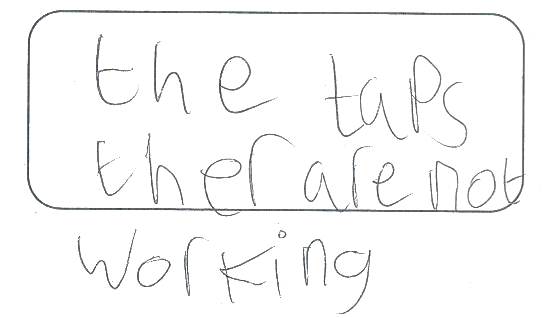 the taps
ther are not
working